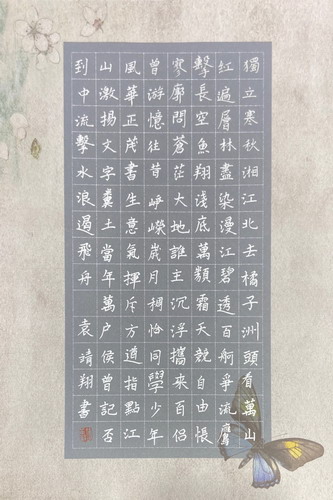 獨立寒秋湘江北去橘子洲頭看萬山
紅遍層林盡染漫江碧透百舸爭流鷹
擊長空魚翔淺底萬類霜天競自由悵
寥廓問蒼茫大地誰主沉浮攜來百侶
曾游憶往昔崢嶸歲月稠恰同學少年
風華正茂書生意氣揮斥方遒指點江
山激揚文字糞土當年萬户侯曾記否
到中流擊水浪遏飛舟 袁靖翔書